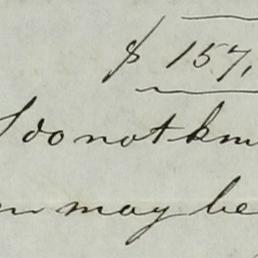 $ 157,
I do not kn
may be